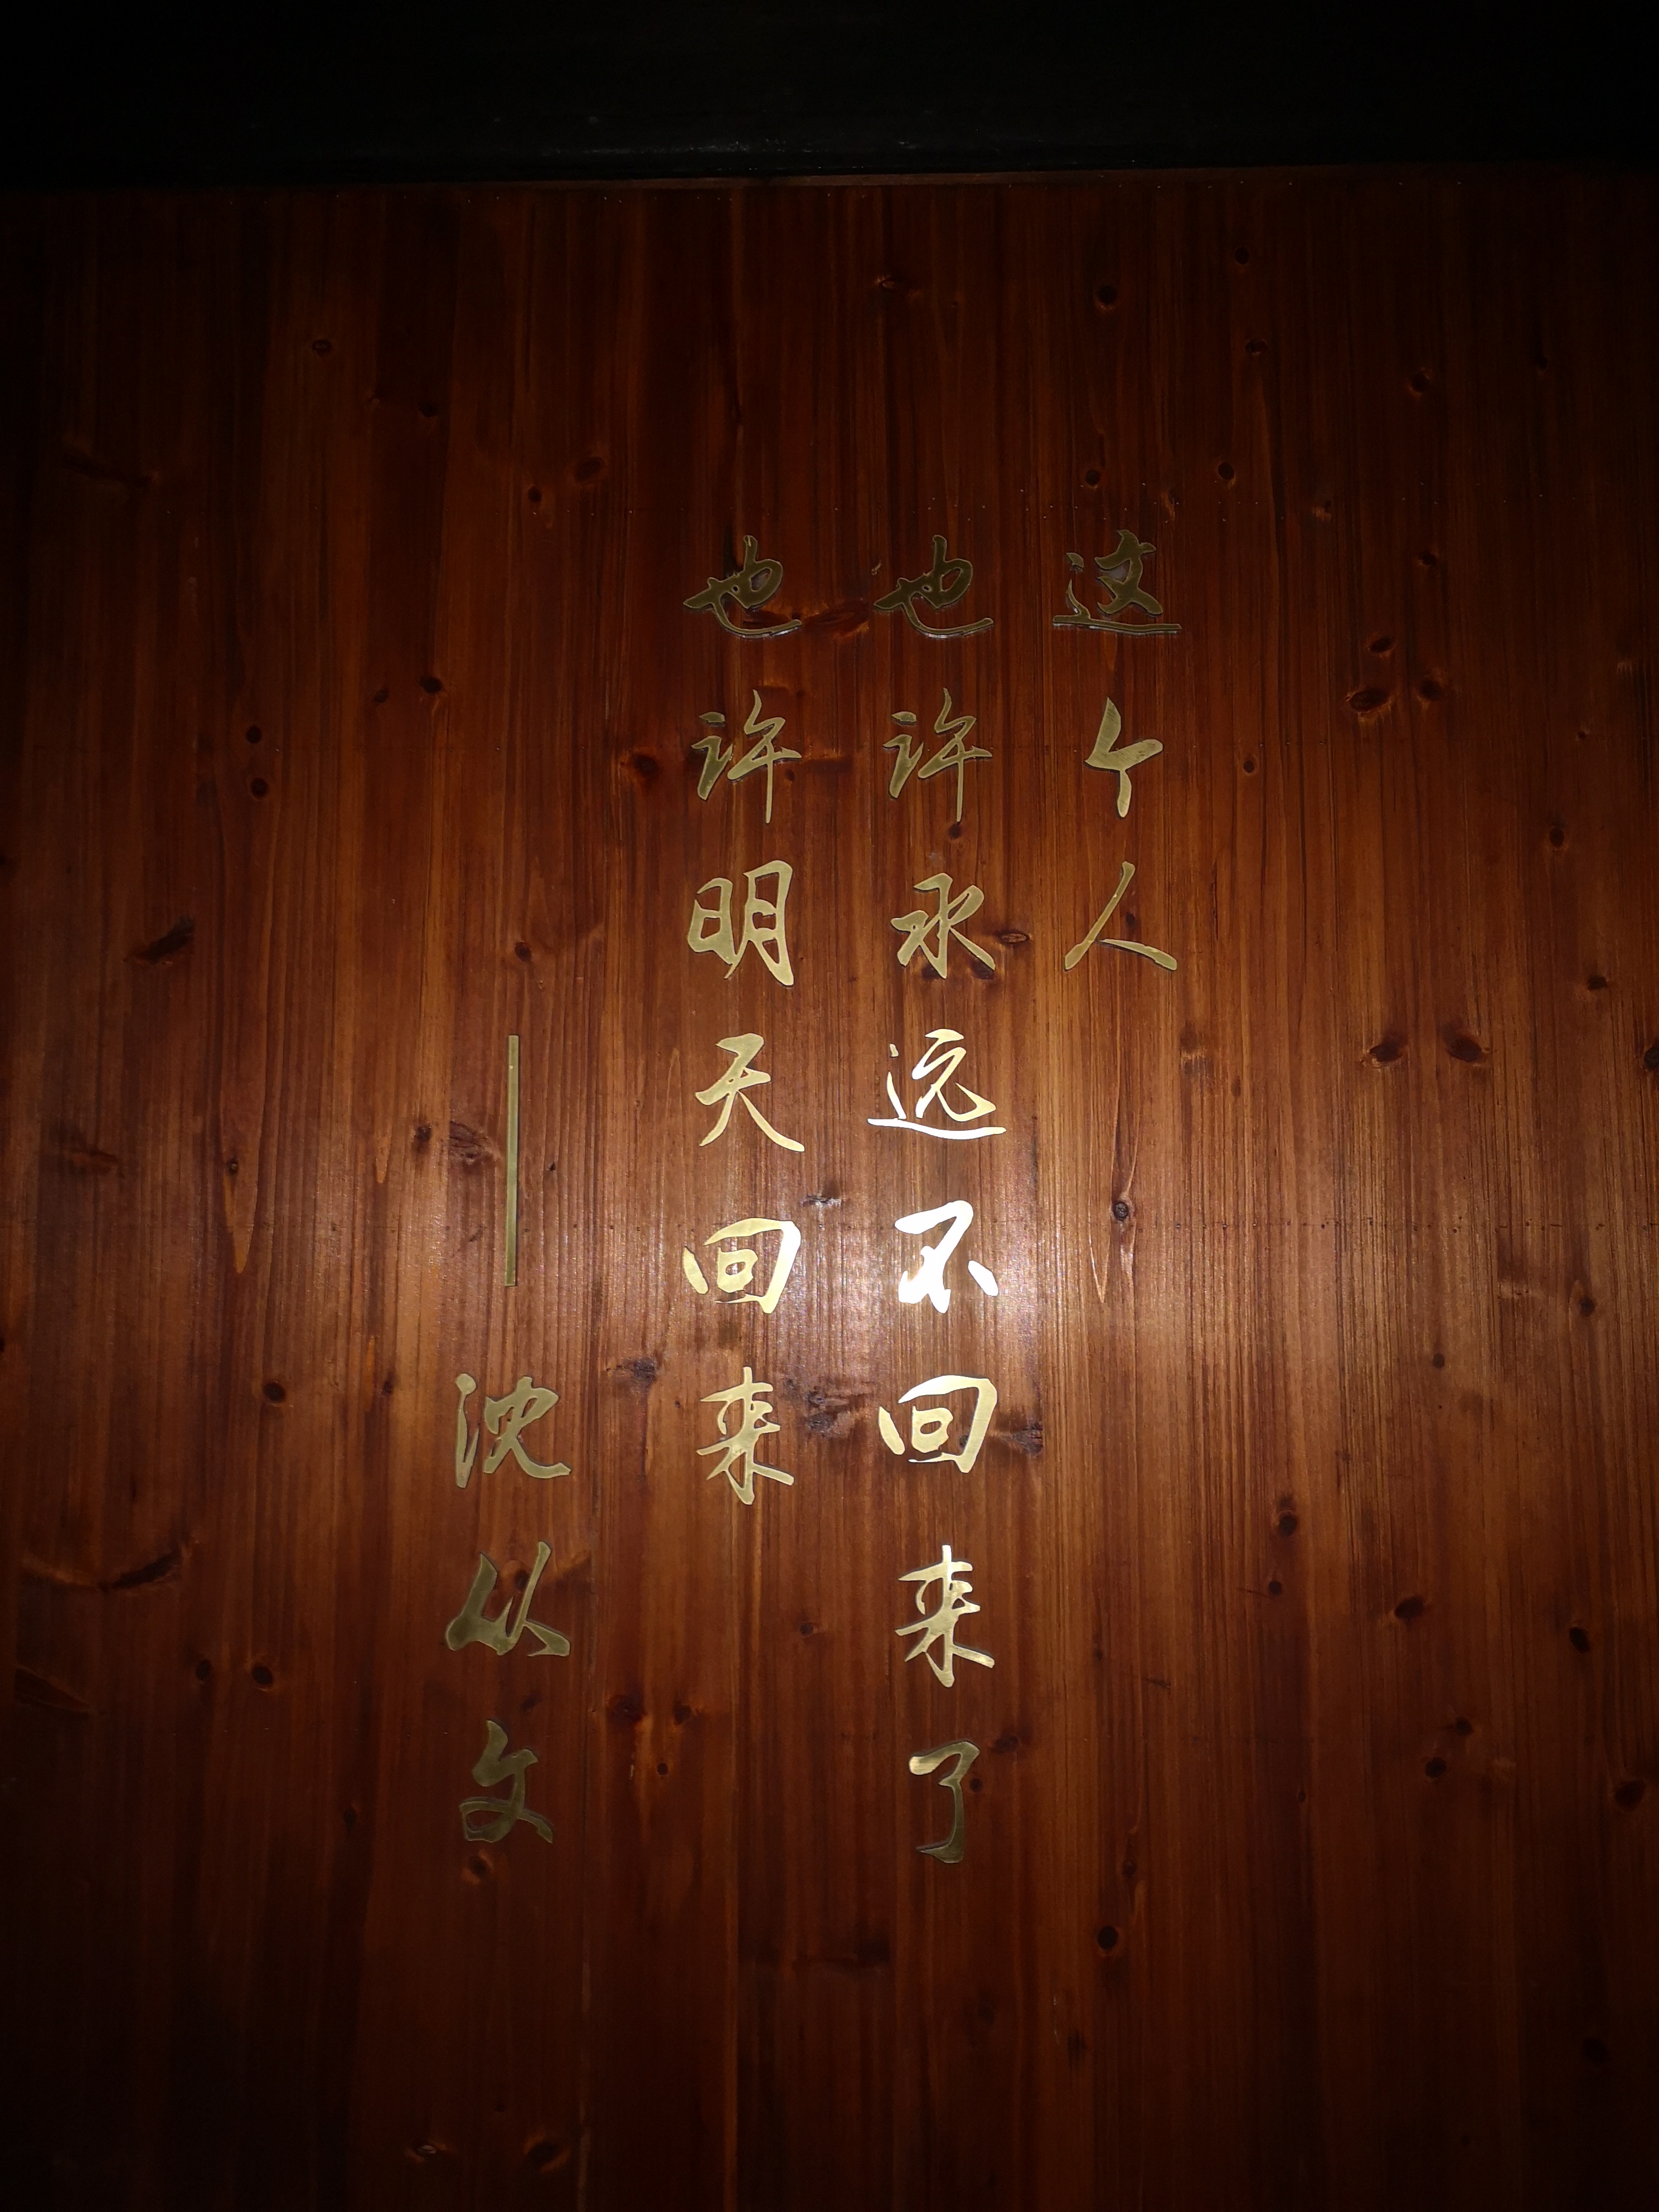 这个人
也许永远不回来了
也许明天回来
——沈从文